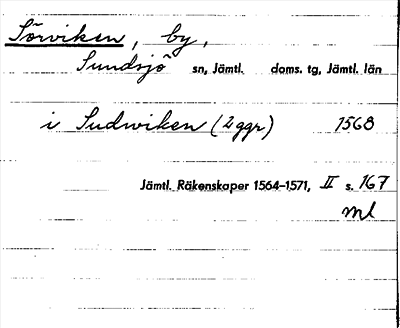 Sörviken, by,
Sundsjö sn, Jämtl. doms. tg, Jämtl. län
i Sudwiken (2 ggr) 1568
Jämtl. Räkenskaper 1564–1571, II s. 167
ml